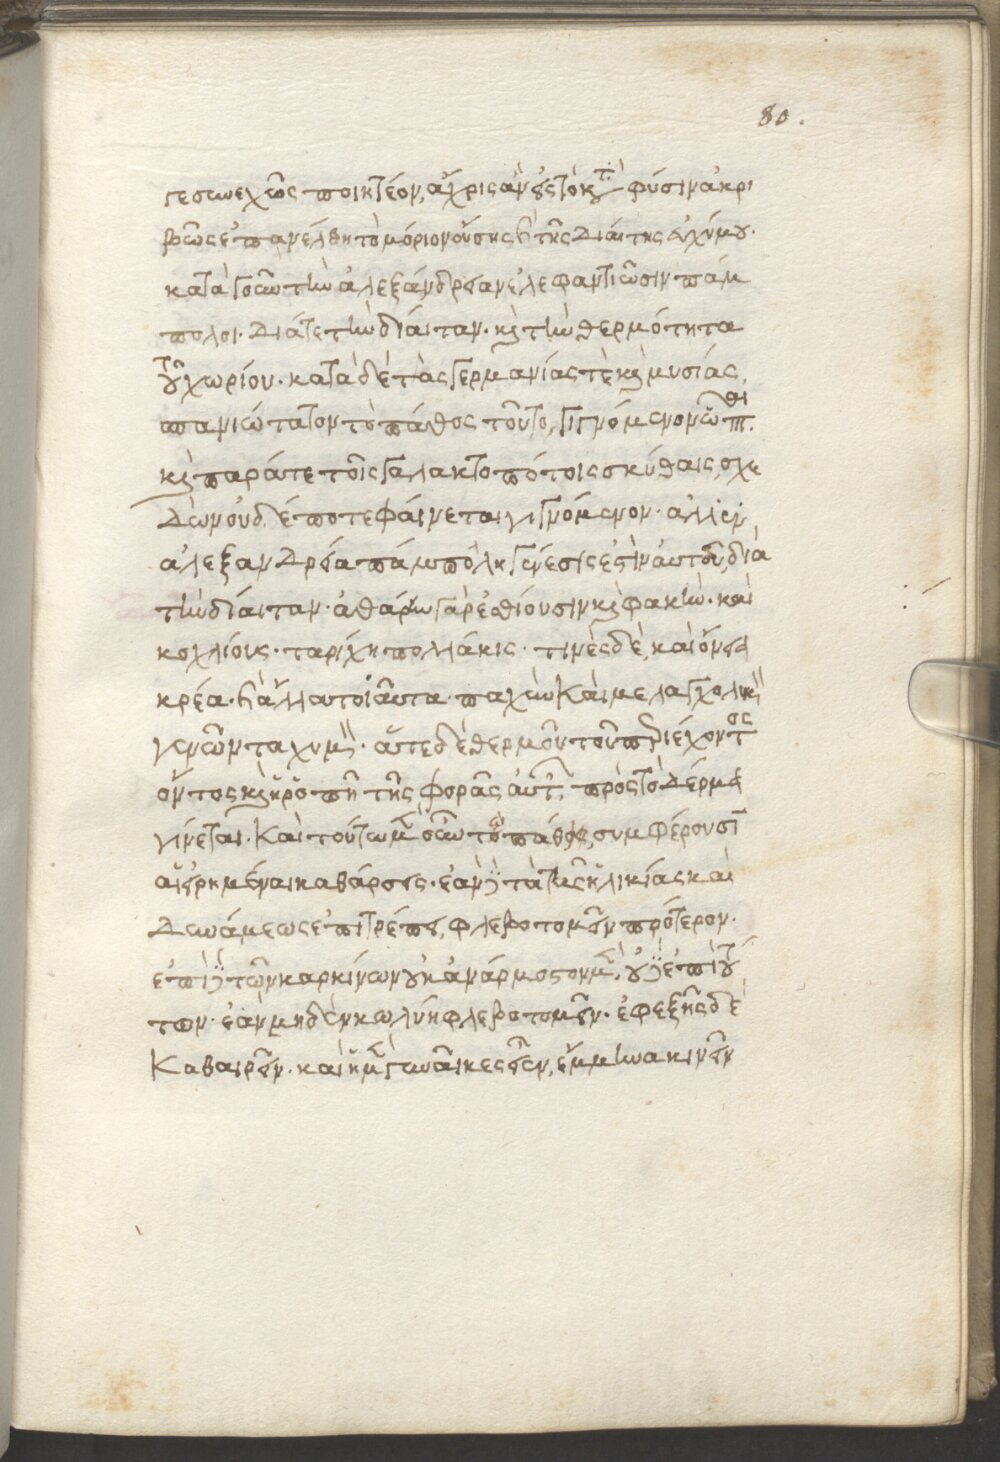 80.
τε συνεχῶς ποιητέον, ἄχρις ἂν εἰς τὸ κατὰ φύσιν ἀκρι
βῶς ἐπανέλθη τὸ μόριον οὔσης καὶ τῆς διαίτης εὐχύμου.
κατὰ γοῦν τὴν ἀλεξάνδρειαν ἐλεφαντιῶσιν πάμ
πολοι. διά τε τὴν δίαιταν. καὶ τὴν θερμότητα
τοῦ χωρίου. κατὰ δὲ τὰς γερμανίας τὲ καὶ μυσίας,
σπανιώτατον τὸ πάθος τοῦτο, γιγνόμενον ὦπται.
καὶ παρά τε τοῖς γαλακτοπότοις σκύθαις, σχε
δὼν οὐδέποτε φαίνεται γιγνόμενον. ἀλλ' ἐν
ἀλεξανδρεία παμπόλη γένεσις ἐστὶν αυτοῦ, διὰ
τὴν δίαιταν. ἀθάρην γὰρ ἐσθίουσιν καὶ φακὴν. καὶ
κοχλίους. ταρίχη πολλάκις. τινὲς δὲ, καὶ ὄνεια
κρέα. καὶ ἄλλα τοιαῦτα. παχὺν καὶ μελαγχολικὸν
γενῶντα χυμὸν. ἅτε δὲ θερμοῦ τοῦ περιέχοντος
ὄντος καὶ ἡ ῥοπὴ τῆς φορᾶς αὐτῶν, πρὸς τὸ δέρμα
γίνεται. καὶ τούτων μὲν οὖν τῶ πάθει, συμφέρουσιν
αἱ εἰρημέναι καθάρσεις. ἐὰν δὲ τὰ τῆς ἡλικίας καὶ
δυνάμεως ἐπιτρέπει, φλεβοτομεῖν πρότερον.
ἐπὶ δὲ τῶν καρκίνων οὐκ ἀνάρμοστον μὲν, οὐδὲ ἐπὶ τού
των. ἐὰν μηδὲν κωλύη φλεβοτομεῖν. ἐφεξῆς δὲ
καθαιρεῖν. καὶ ἡμὲν γυναῖκες εἶεν, ἔμμηνα κινεῖν